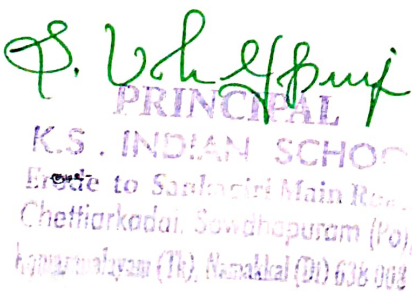 S.
PRINCIPAL
K.S. INDIAN SCHOO
Erode to Sankagiri Main Roa
Chettiarkadai, Sowdhapuram (Po),
Kumarapalayam (Tk), Namakkal (Dt) 638 008